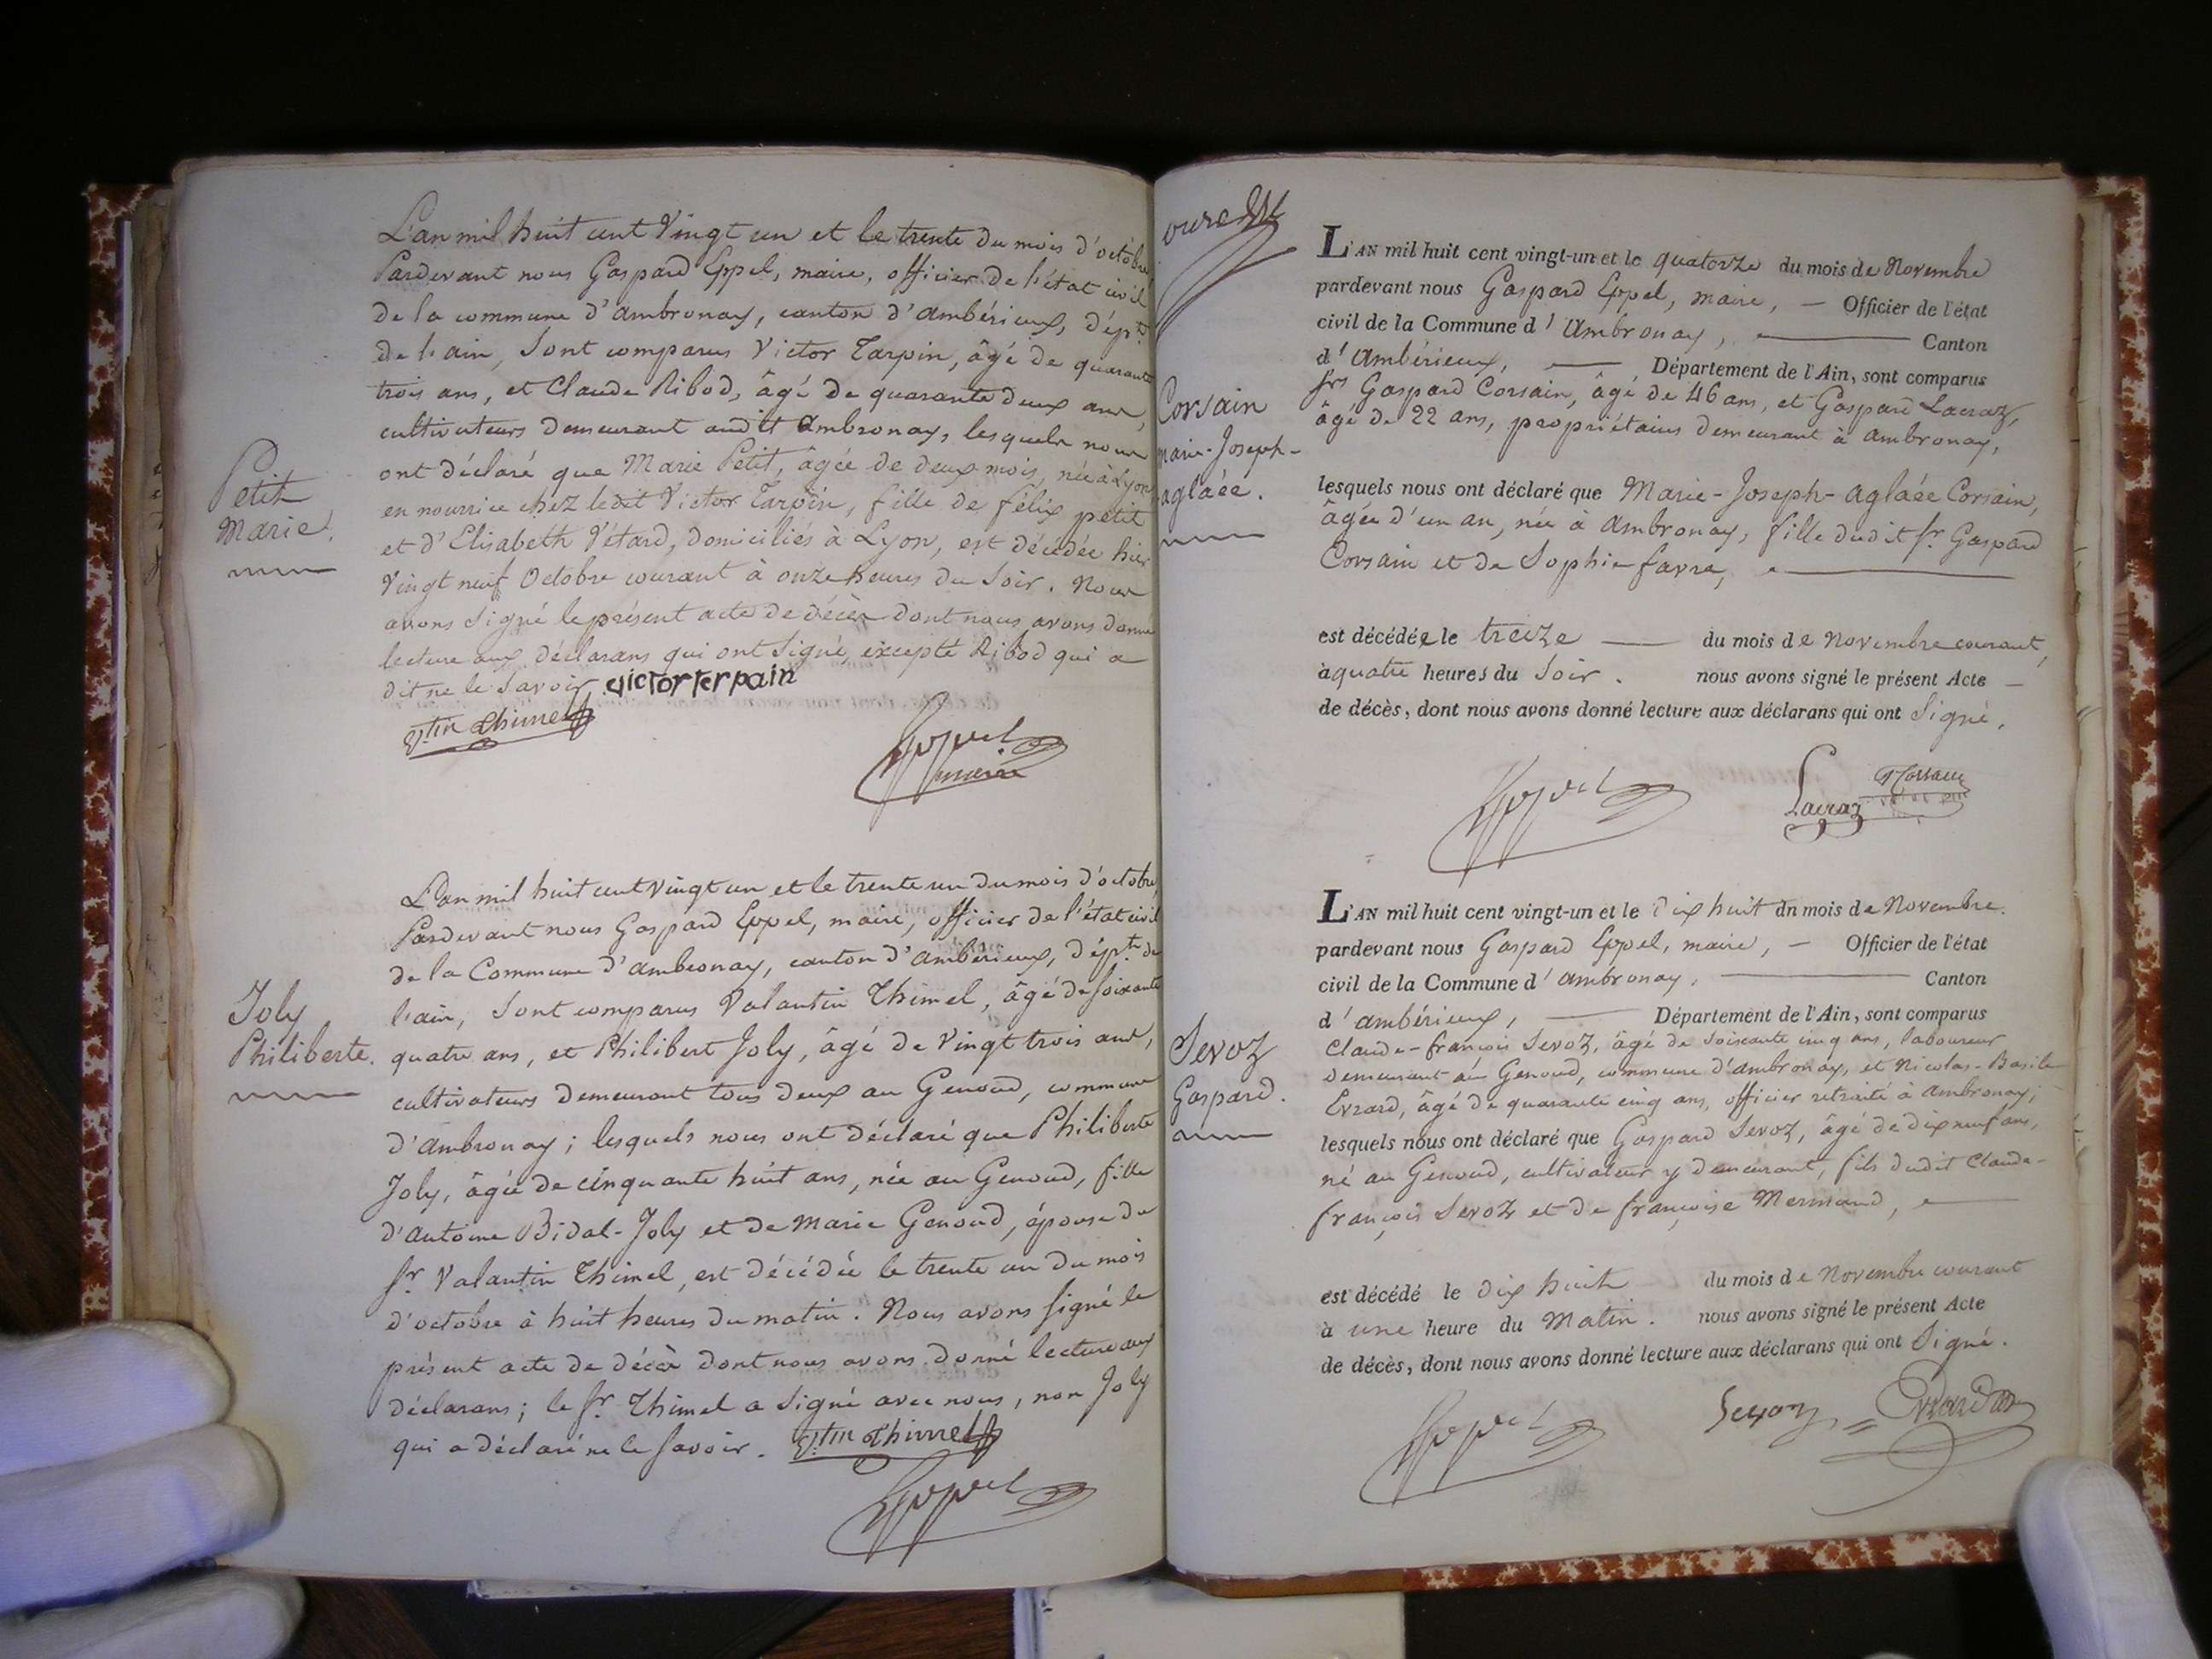 Petit
Marie.
L'an mil huit cent Vingt un et le trente du mois d'octobre
Pardevant nous Gaspard Eppel, maire, officier de l'état civil
de la commune d'ambronay, canton d'ambérieux, dép.t
de l'ain, Sont comparus Victor Tarpin, âgé de quarante
trois ans, et Claude Ribod, âgé de quarante deux ans,
cultivateurs demeurant audit Ambronay, lesquels nous
ont déclaré que Marie Petit, âgée de deux mois, née à Lyon
en nourrice chez ledit Victor Tarpin, fille de félix petit
et d'Elisabeth Vétard, domiciliés à Lyon, est décédée hier
Vingt neuf Octobre courant à onze heures du Soir. Nous
avons Signé le présent acte de décès dont nous avons donné
lecture aux déclarans qui ont Signé, excepté Ribod qui a
dit ne le Savoir. victor terpain
V.tin Thimel
Eppel
maire
Joly
Philiberte.
L'an mil huit cent Vingt un et le trente un du mois d'octobre,
Pardevant nous Gaspard Eppel, maire, officier de l'état civil
de la Commune d'ambronay, canton d'ambérieux, dép.t de
l'ain, Sont comparus Valantin Thimel, âgé de Soixante
quatre ans, et Philibert Joly, âgé de Vingt trois ans,
cultivateurs demeurant tous deux au Genoud, commune
d'Ambronay; lesquels nous ont déclaré que Philiberte
Joly, âgée de cinquante huit ans, née au Genoud, fille
d'antoine Bidal-Joly et de Marie Genoud, épouse du
Sr. Valantin Thimel, est décédée le trente un du mois
d'octobre à huit heures du matin. Nous avons signé le
présent acte de décès dont nous avons donné lecture aux
déclarans; le Sr. Thimel a Signé avec nous, non Joly
qui a déclaré ne le Savoir. V.tin Thimel
Eppel
Corsain
Marie-Joseph-
aglaée.
L'AN mil huit cent vingt-un et le quatorze du mois de Novembre
pardevant nous Gaspard Eppel, maire, — Officier de l'état
civil de la Commune d'Ambronay, — Canton
d'Ambérieux, — Département de l'Ain, sont comparus
Srs Gaspard Corsain, âgé de 46 ans, et Gaspard Lacraz,
âgé de 22 ans, propriétaires demeurant à ambronay,
lesquels nous ont déclaré que Marie-Joseph-aglaée Corsain,
âgée d'un an, née à Ambronay, fille dudit Sr. Gaspard
Corsain et de Sophie favre, —
est décédée le treize — du mois de Novembre courant,
à quatre heures du Soir. nous avons signé le présent Acte —
de décès, dont nous avons donné lecture aux déclarans qui ont Signé.
Eppel
Corsain
Lacraz
Sevoz
Gaspard.
L'AN mil huit cent vingt-un et le dix huit du mois de Novembre.
pardevant nous Gaspard Eppel, maire, — Officier de l'état
civil de la Commune d'ambronay, — Canton
d'ambérieux, — Département de l'Ain, sont comparus
Claude-françois Sevoz, âgé de Soixante cinq ans, laboureur
demeurant au Genoud, commune d'ambronay, et Nicolas-Basile
Evrard, âgé de quarante cinq ans, officier retraité à Ambronay;
lesquels nous ont déclaré que Gaspard Sevoz, âgé de dix neuf ans,
né au Genoud, cultivateur y demeurant, fils dudit Claude-
françois Sevoz et de françoise Mermand, —
est décédé le dix huit du mois de Novembre courant
à une heure du Matin. nous avons signé le présent Acte
de décès, dont nous avons donné lecture aux déclarans qui ont Signé.
Eppel
Sevoz
Evrard